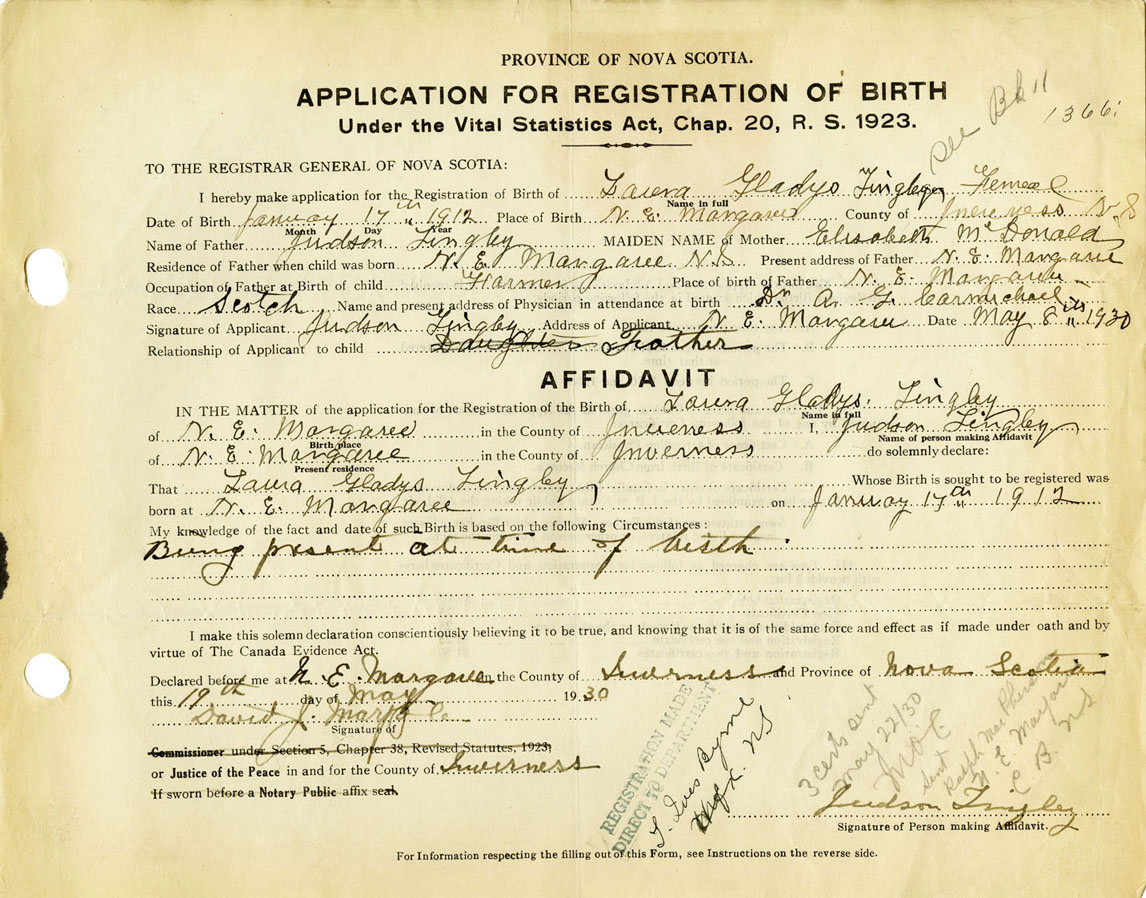 PROVINCE OF NOVA SCOTIA.
APPLICATION FOR REGISTRATION OF BIRTH
Under the Vital Statistics Act, Chap. 20, R. S. 1923.
See Bk 11
1366
TO THE REGISTRAR GENERAL OF NOVA SCOTIA:
I hereby make application for the Registration of Birth of Laura Gladys Tingley, Female
Name in full
Date of Birth January 17th 1912 Place of Birth N. E. Margaree County of Inverness N. S
Month Day Year
Name of Father Judson Tingley MAIDEN NAME of Mother Elisabeth McDonald
Residence of Father when child was born N. E. Margaree N.S. Present address of Father N. E. Margaree
Occupation of Father at Birth of child Farmer Place of birth of Father N. E. Margaree
Race Scotch Name and present address of Physician in attendance at birth Dr Carmichael
Signature of Applicant Judson Tingley Address of Applicant N. E. Margaree Date May 8th 1930
Relationship of Applicant to child Daughter Father
AFFIDAVIT
IN THE MATTER of the application for the Registration of the Birth of Laura Gladys. Tingley
Name in full
of N. E. Margaree in the County of Inverness I, Judson Tingley
Birth place Name of person making Affidavit
of N. E. Margaree in the County of Inverness do solemnly declare:
Present residence
That Laura Gladys Tingley, Whose Birth is sought to be registered was
born at N. E. Margaree on January 17th 1912
My knowledge of the fact and date of such Birth is based on the following Circumstances:
Being present at time of birth.
I make this solemn declaration conscientiously believing it to be true, and knowing that it is of the same force and effect as if made under oath and by
virtue of The Canada Evidence Act.
Declared before me at N. E. Margaree in the County of Inverness and Province of Nova Scotia
this 19th day of May 1930
David J.
Signature of
Commissioner under Section 5, Chapter 38, Revised Statutes, 1923;
or Justice of the Peace in and for the County of Inverness
If sworn before a Notary Public affix seal
REGISTRATION MADE
DIRECT TO DEPARTMENT
Ives Byrne
Hfx. NS
3 certs sent
May 22/30
sent
Ralph
C B. NS
Judson Tingley
Signature of Person making Affidavit.
For Information respecting the filling out of this Form, see Instructions on the reverse side.